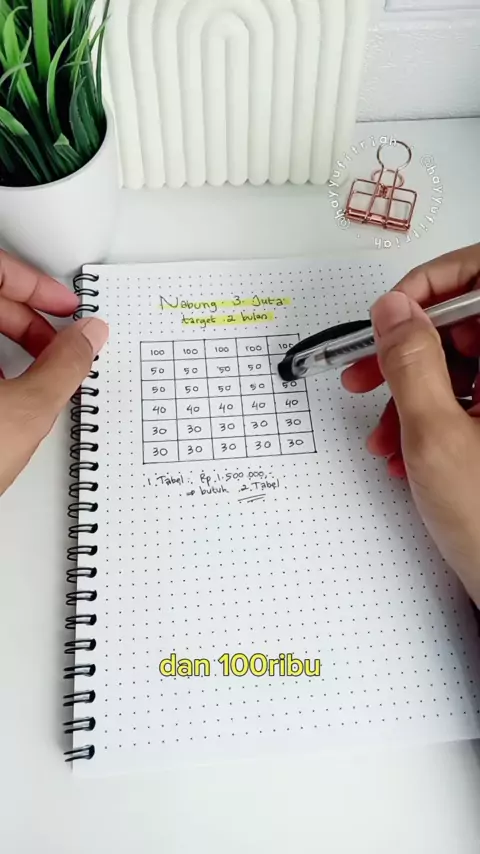 @hayyufitriah . @hayyufitriah .
Nabung 3 Juta
target 2 bulan
100 100 100 100 100
50 50 50 50
50 50 50 50 50
40 40 40 40 40
30 30 30 30 30
30 30 30 30 30
1 Tabel : Rp 1.500.000,-
⇒ butuh 2 Tabel
dan 100ribu